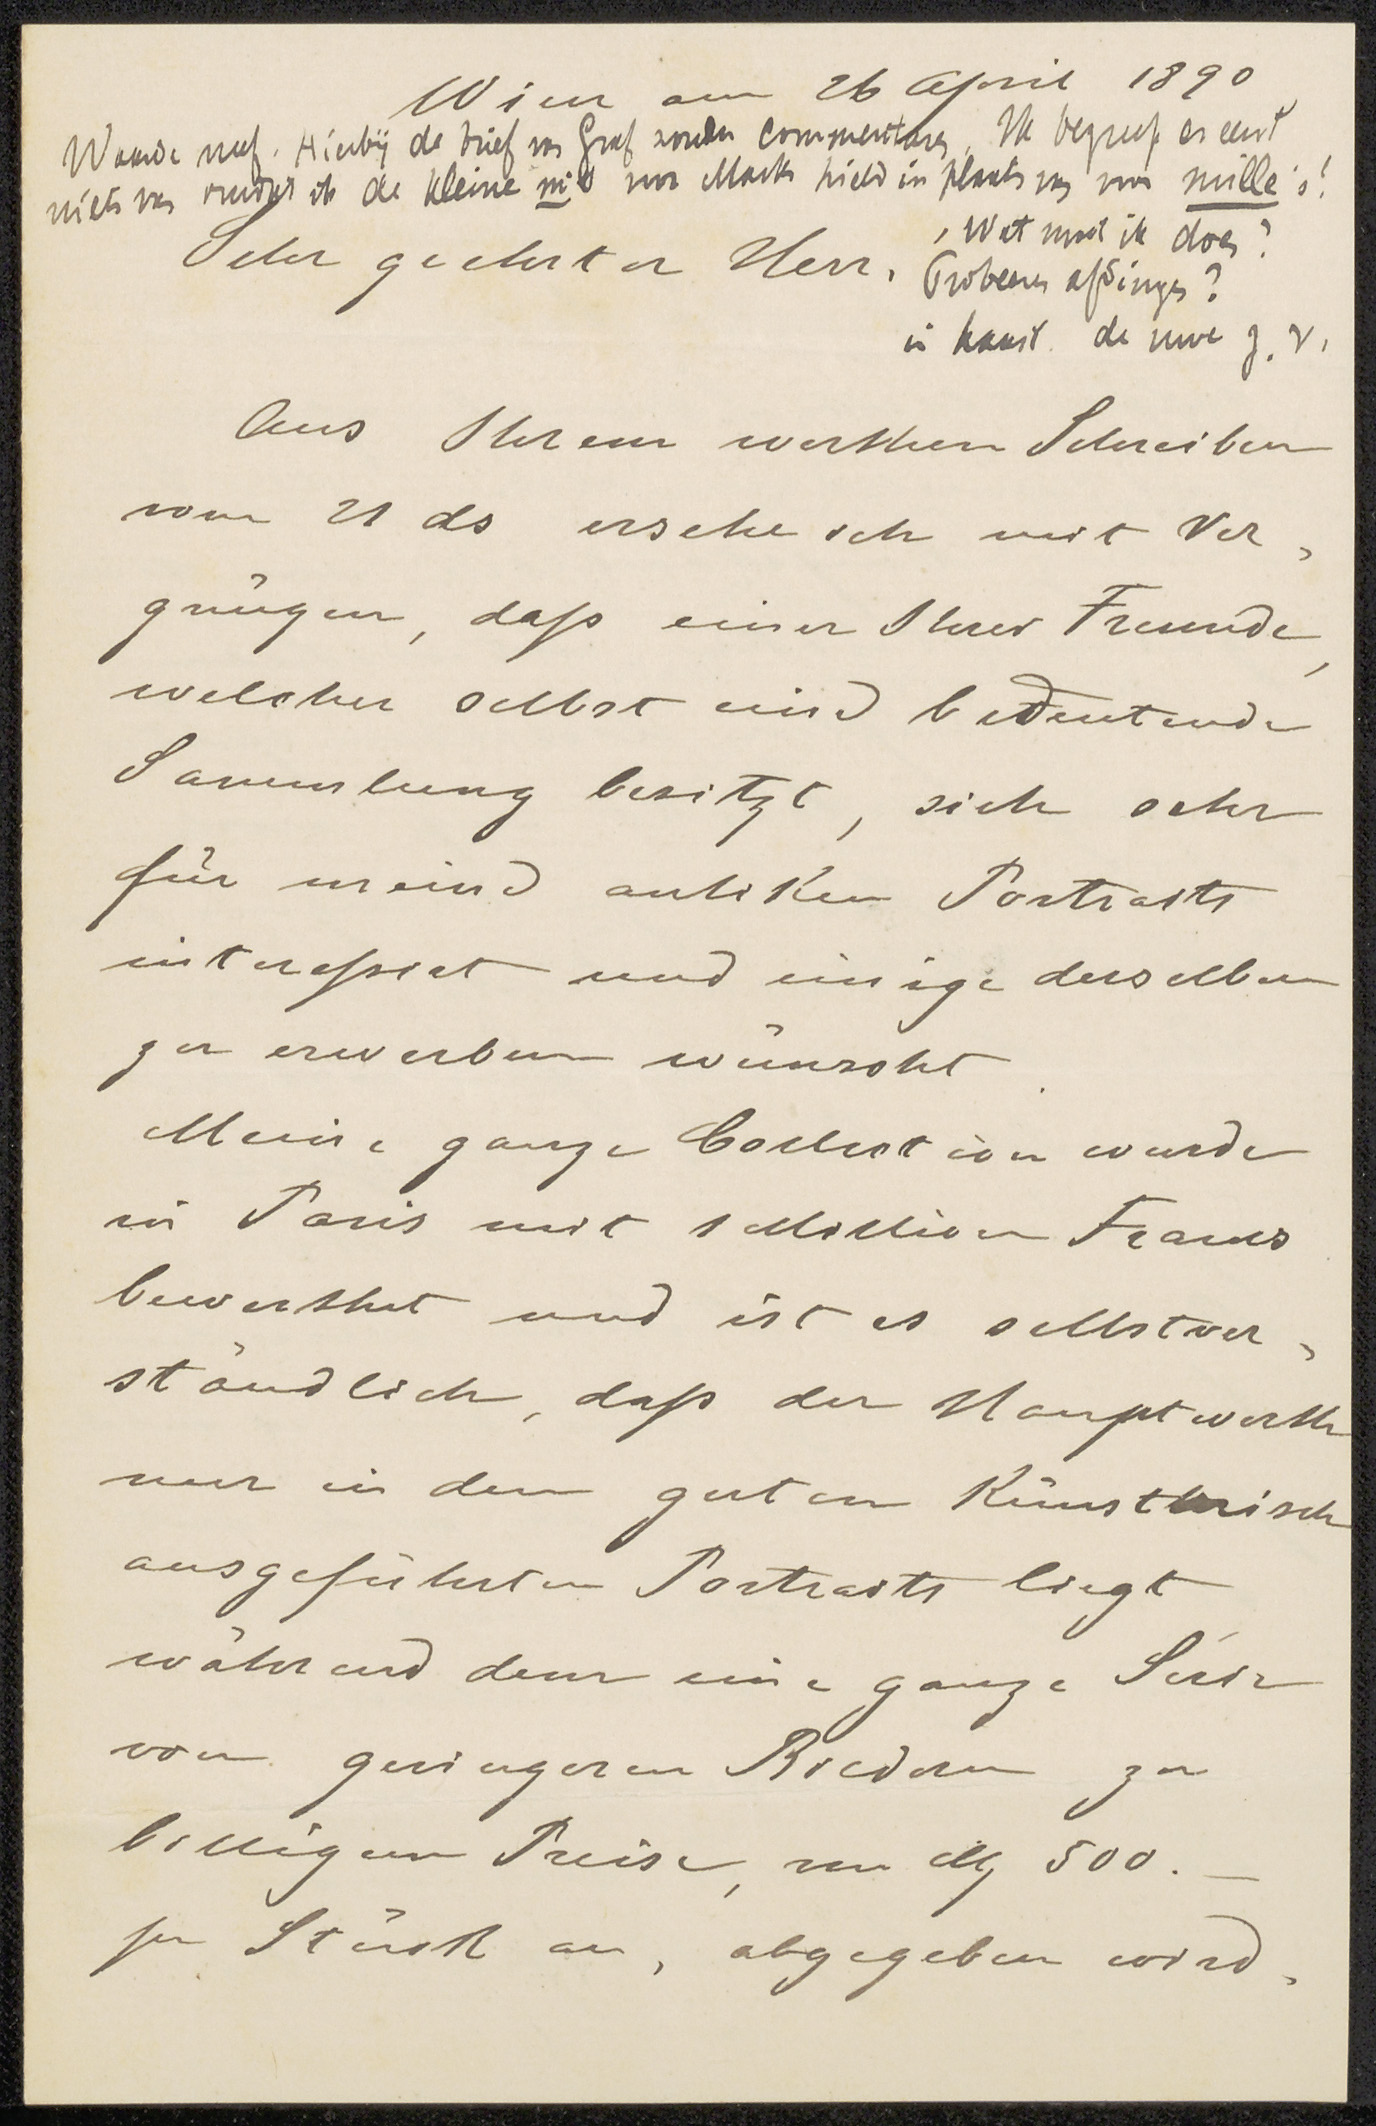 Wien am 26 April 1890
Waarde neef. Hierbij de brief van Graf zonder commentaren. Ik begreep er eerst
niets van omdat ik de kleine m's voor Mark hield in plaats van voor mille's!
Sehr geehrter Herr,
Wat moet ik doen?
Probeeren afdingen?
in haast de uwe J. V.
Aus Ihrem werthen Schreiben
vom 21 ds ersehe ich mit Ver-
gnügen, daß einer Ihrer Freunde,
welcher selbst eine bedeutende
Sammlung besitzt, sich sehr
für meine antiken Portraits
interessiert und einige derselben
zu erwerben wünscht.
Meine ganze Collection wurde
in Paris mit 1 Million Francs
bewerthet und ist es selbstver-
ständlich, daß der Hauptwerth
nur in den guten Künstlerisch
ausgeführten Portraits liegt
während dem eine ganze Serie
von geringeren Bildern zu
billigem Preise, von M 500.—
per Stück an, abgegeben wird.